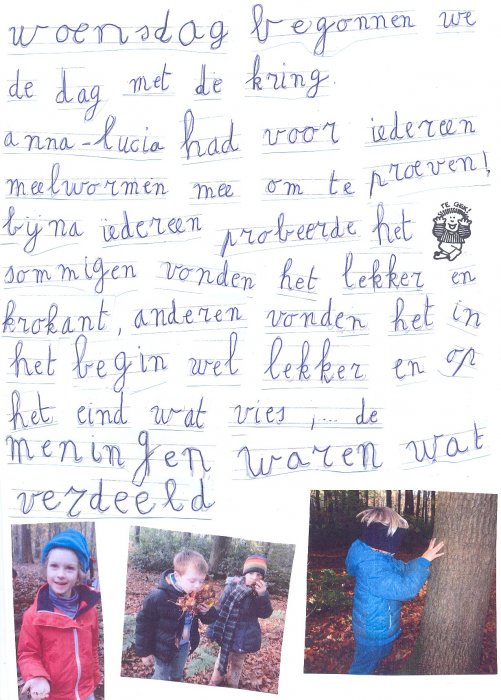 woensdag begonnen we
de dag met de kring.
anna-lucia had voor iedereen
meelwormen mee om te proeven!
bijna iedereen probeerde het
TE GEK!
sommigen vonden het lekker en
krokant, anderen vonden het in
het begin wel lekker en op
het eind wat vies ,... de
meningen waren wat
verdeeld